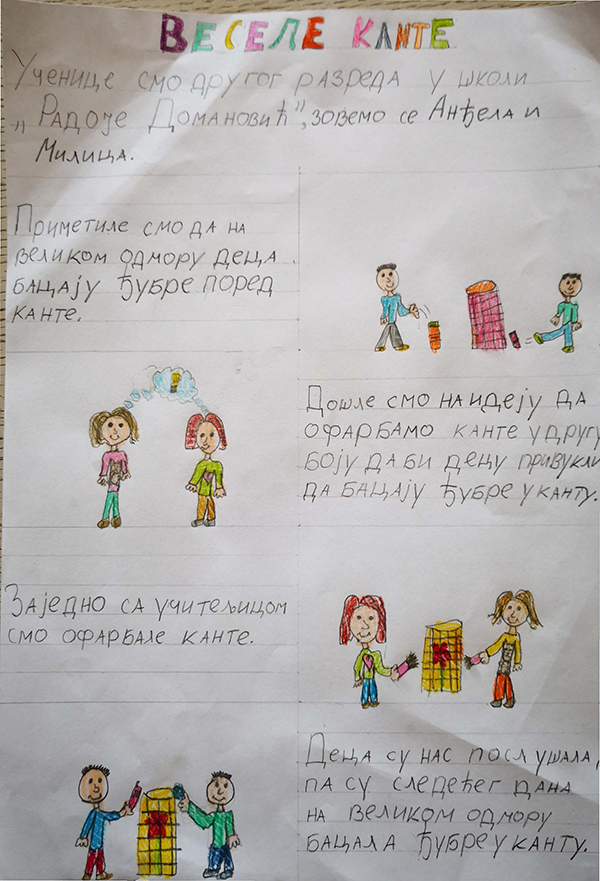 ВЕСЕЛЕ КАНТЕ
Ученице смо другог разреда у школи
„Радоје Домановић”, зовемо се Анђела и
Милица.
Приметиле смо да на
великом одмору деца
бацају ђубре поред
канте.
Дошле смо на идеју да
офарбамо канте у другу
боју да би децу привукли
да бацају ђубре у канту.
Заједно са учитељицом
смо офарбале канте.
Деца су нас послушала,
па су следећег дана
на великом одмору
бацала ђубре у канту.